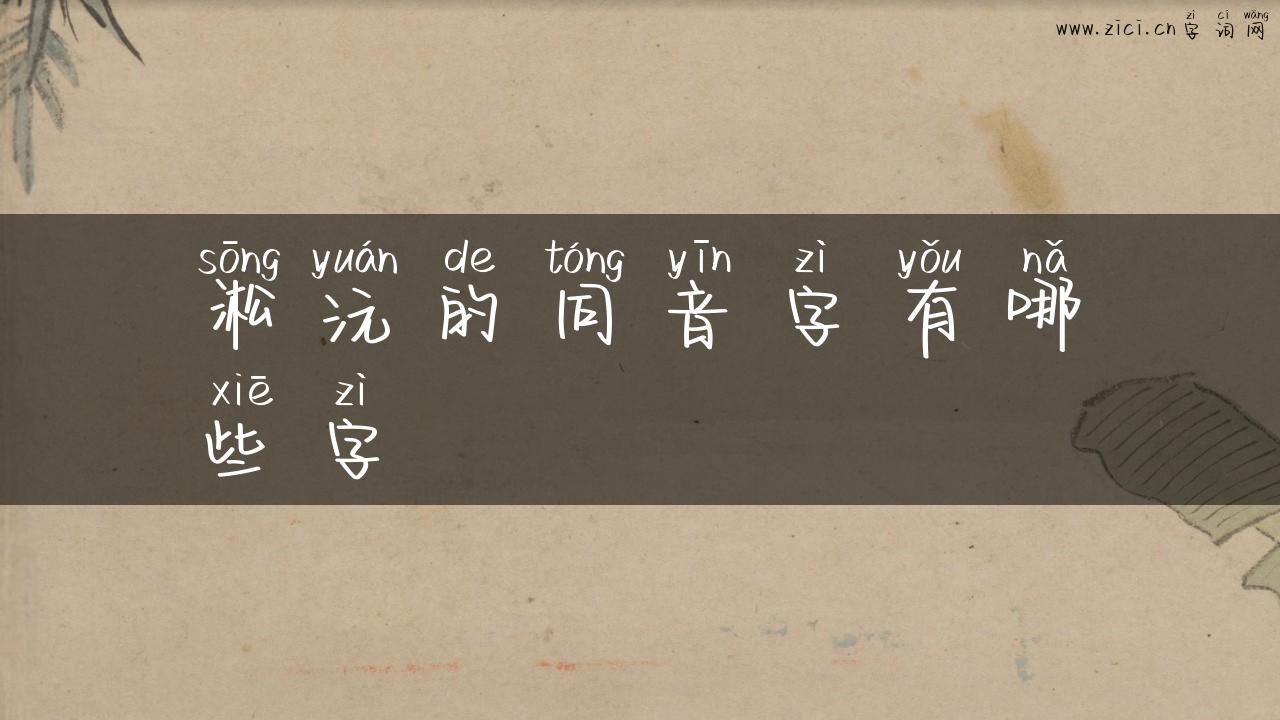 zì cí wǎng
www.zici.cn 字词网
sōng yuán de tóng yīn zì yǒu nǎ
淞沅的同音字有哪
xiē zì
些字